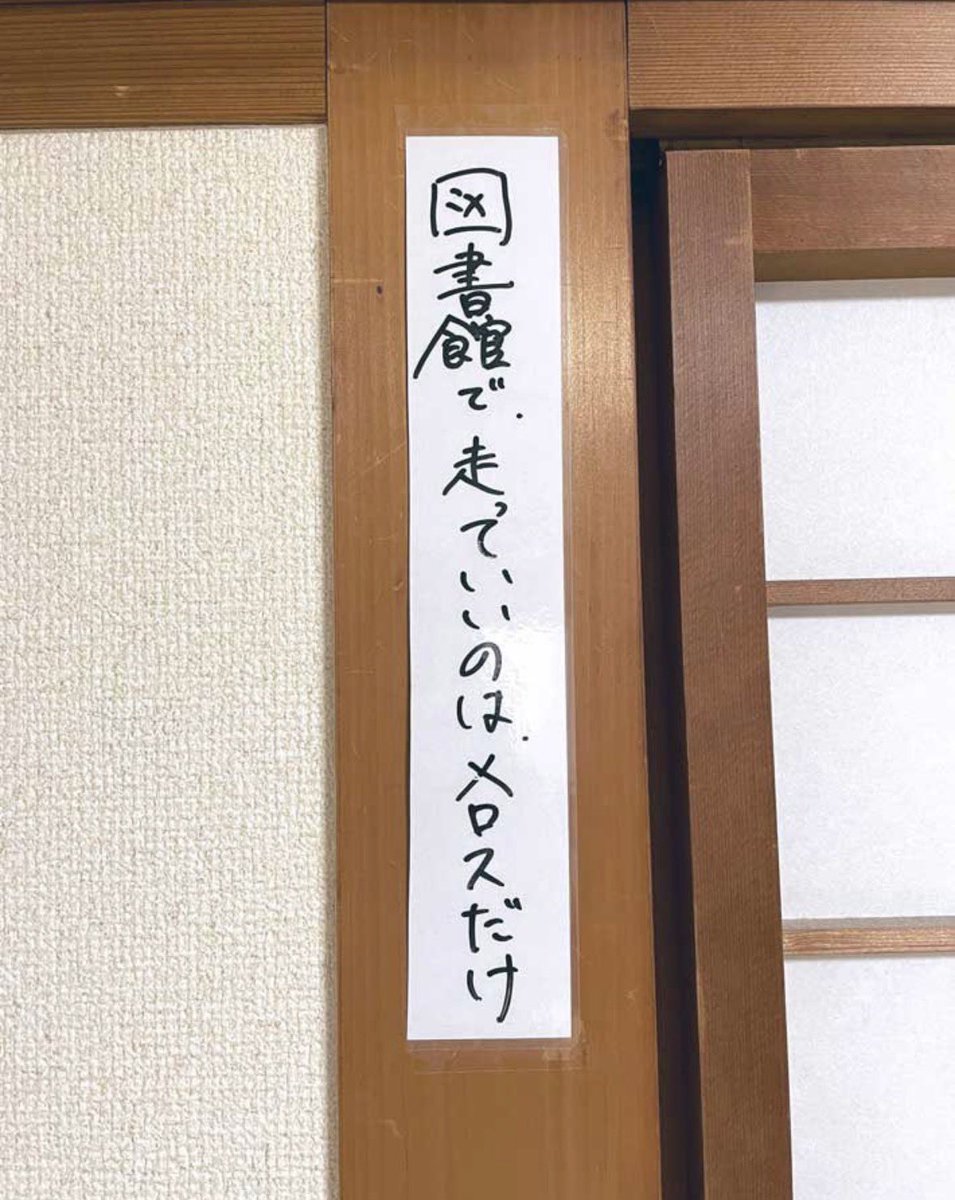 図書館で.走っていいのは.メロスだけ